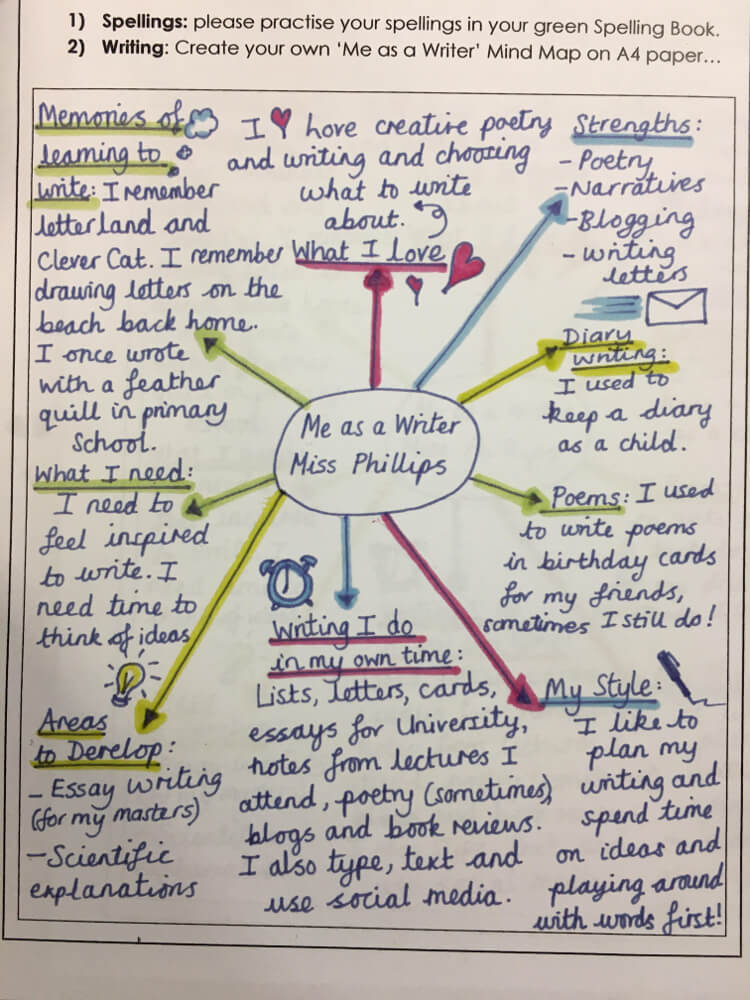 1) Spellings: please practise your spellings in your green Spelling Book.
2) Writing: Create your own ‘Me as a Writer’ Mind Map on A4 paper…
Memories of
learning to
write: I remember
letterland and
Clever Cat. I remember
drawing letters on the
beach back home.
I once wrote
with a feather
quill in primary
School.
I hove creative poetry
and writing and choosing
what to write
about.
What I love
Strengths:
- Poetry
- Narratives
- Blogging
- writing
letters
Diary
writing:
I used to
keep a diary
as a child.
Me as a Writer
Miss Phillips
What I need:
I need to
feel inspired
to write. I
need time to
think of ideas
Poems: I used
to write poems
in birthday cards
for my friends,
sometimes I still do!
Areas
to Develop:
- Essay writing
(for my masters)
- Scientific
explanations
Writing I do
in my own time:
Lists, letters, cards,
essays for University,
notes from lectures I
attend, poetry (sometimes)
blogs and book reviews.
I also type, text and
use social media.
My Style:
I like to
plan my
writing and
spend time
on ideas and
playing around
with words first!